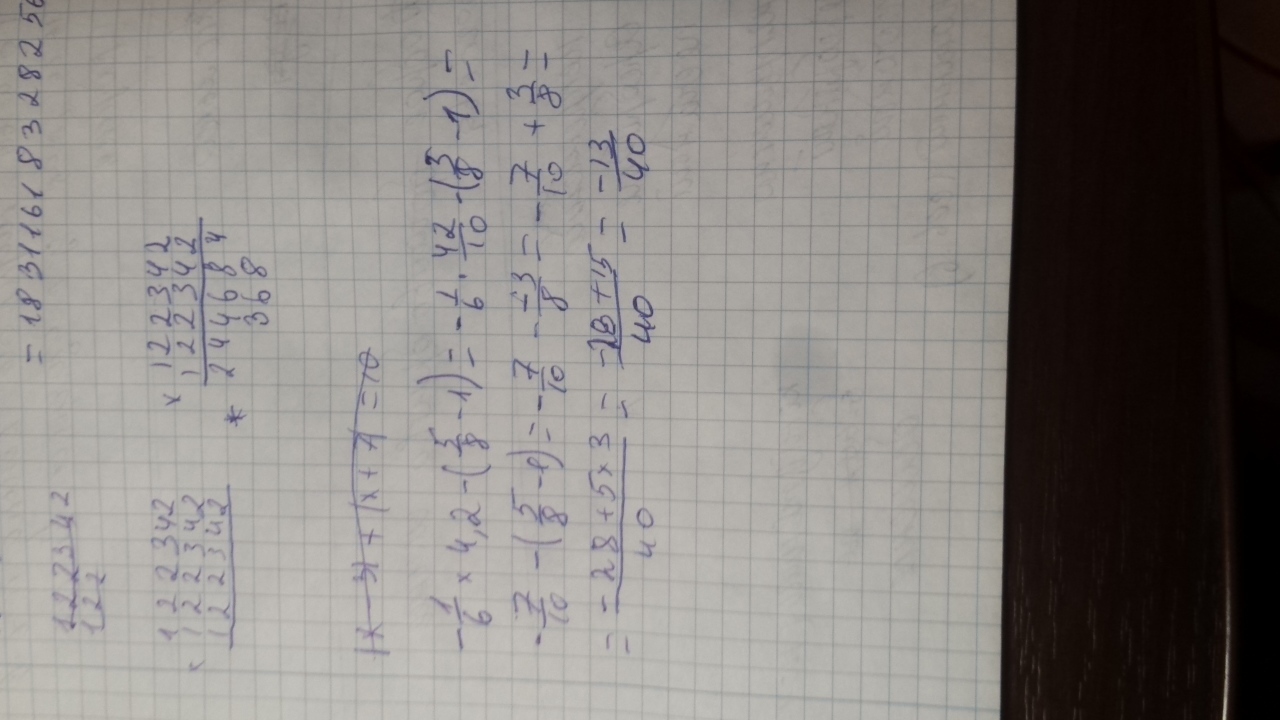 = 1831161832825
122342
122
× 122342
122342
122342
× 122342
122342
* 244684
368
|x - 3| + |x + 1| = 10
-1/6 × 4,2 - (5/8 - 1) = -1/6 · 42/10 - (5/8 - 1) =
-7/10 - (5/8 - 1) = -7/10 - -3/8 = -7/10 + 3/8 =
= -28 + 5 × 3/40 = -28 + 15/40 = -13/40